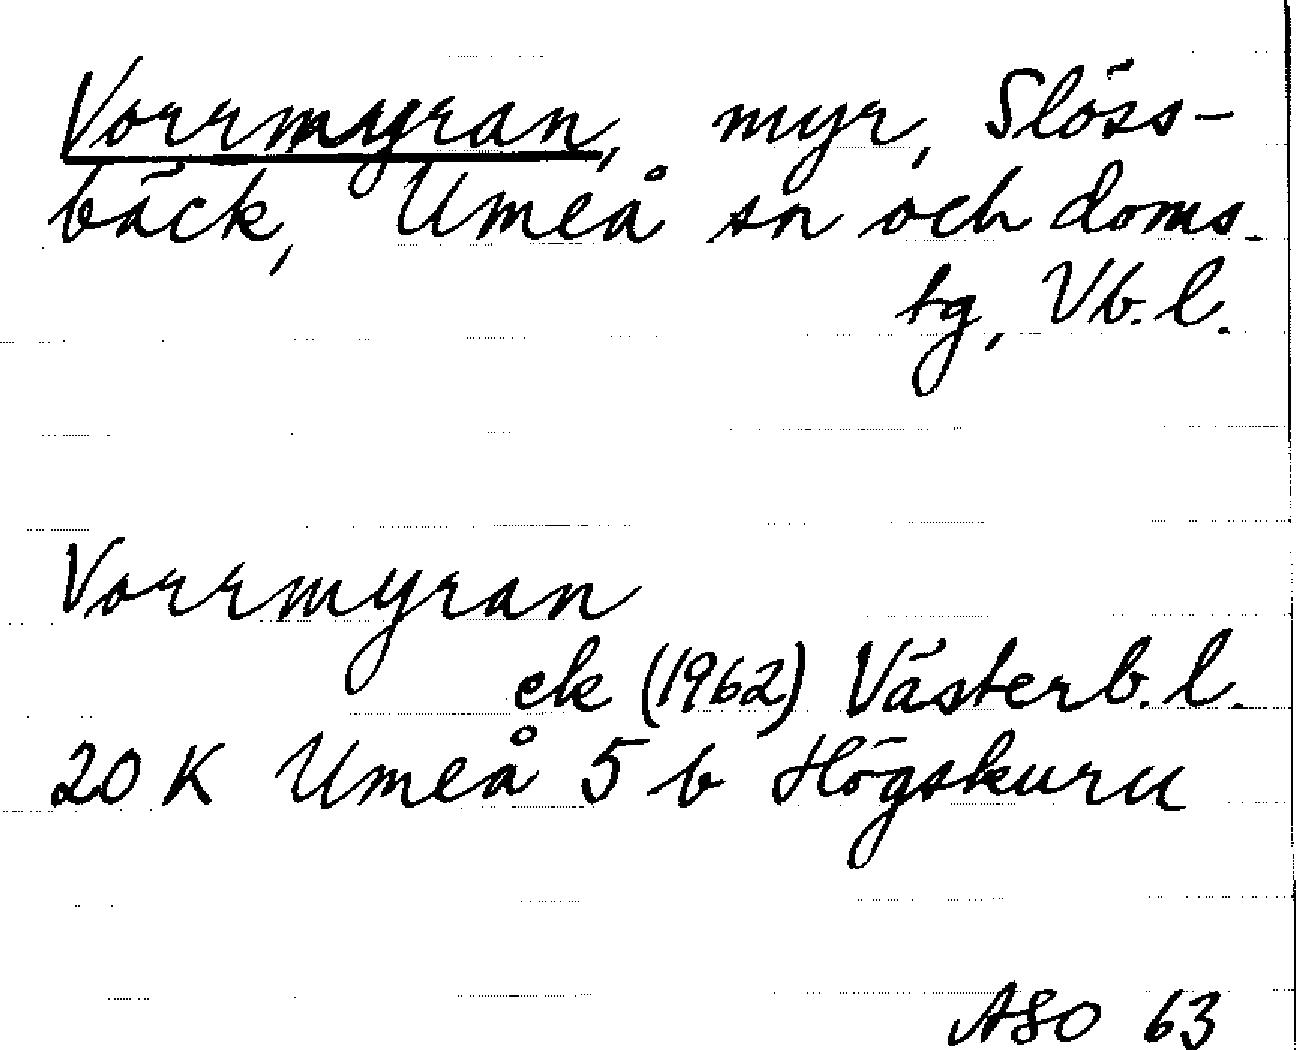 Vorrmyran, myr, Slöss-
bäck, Umeå sn och doms-
tg, Vb. l.
Vorrmyran
ek (1962) Västerb. l.
20 K Umeå 5 b Högskuru
ASO 63